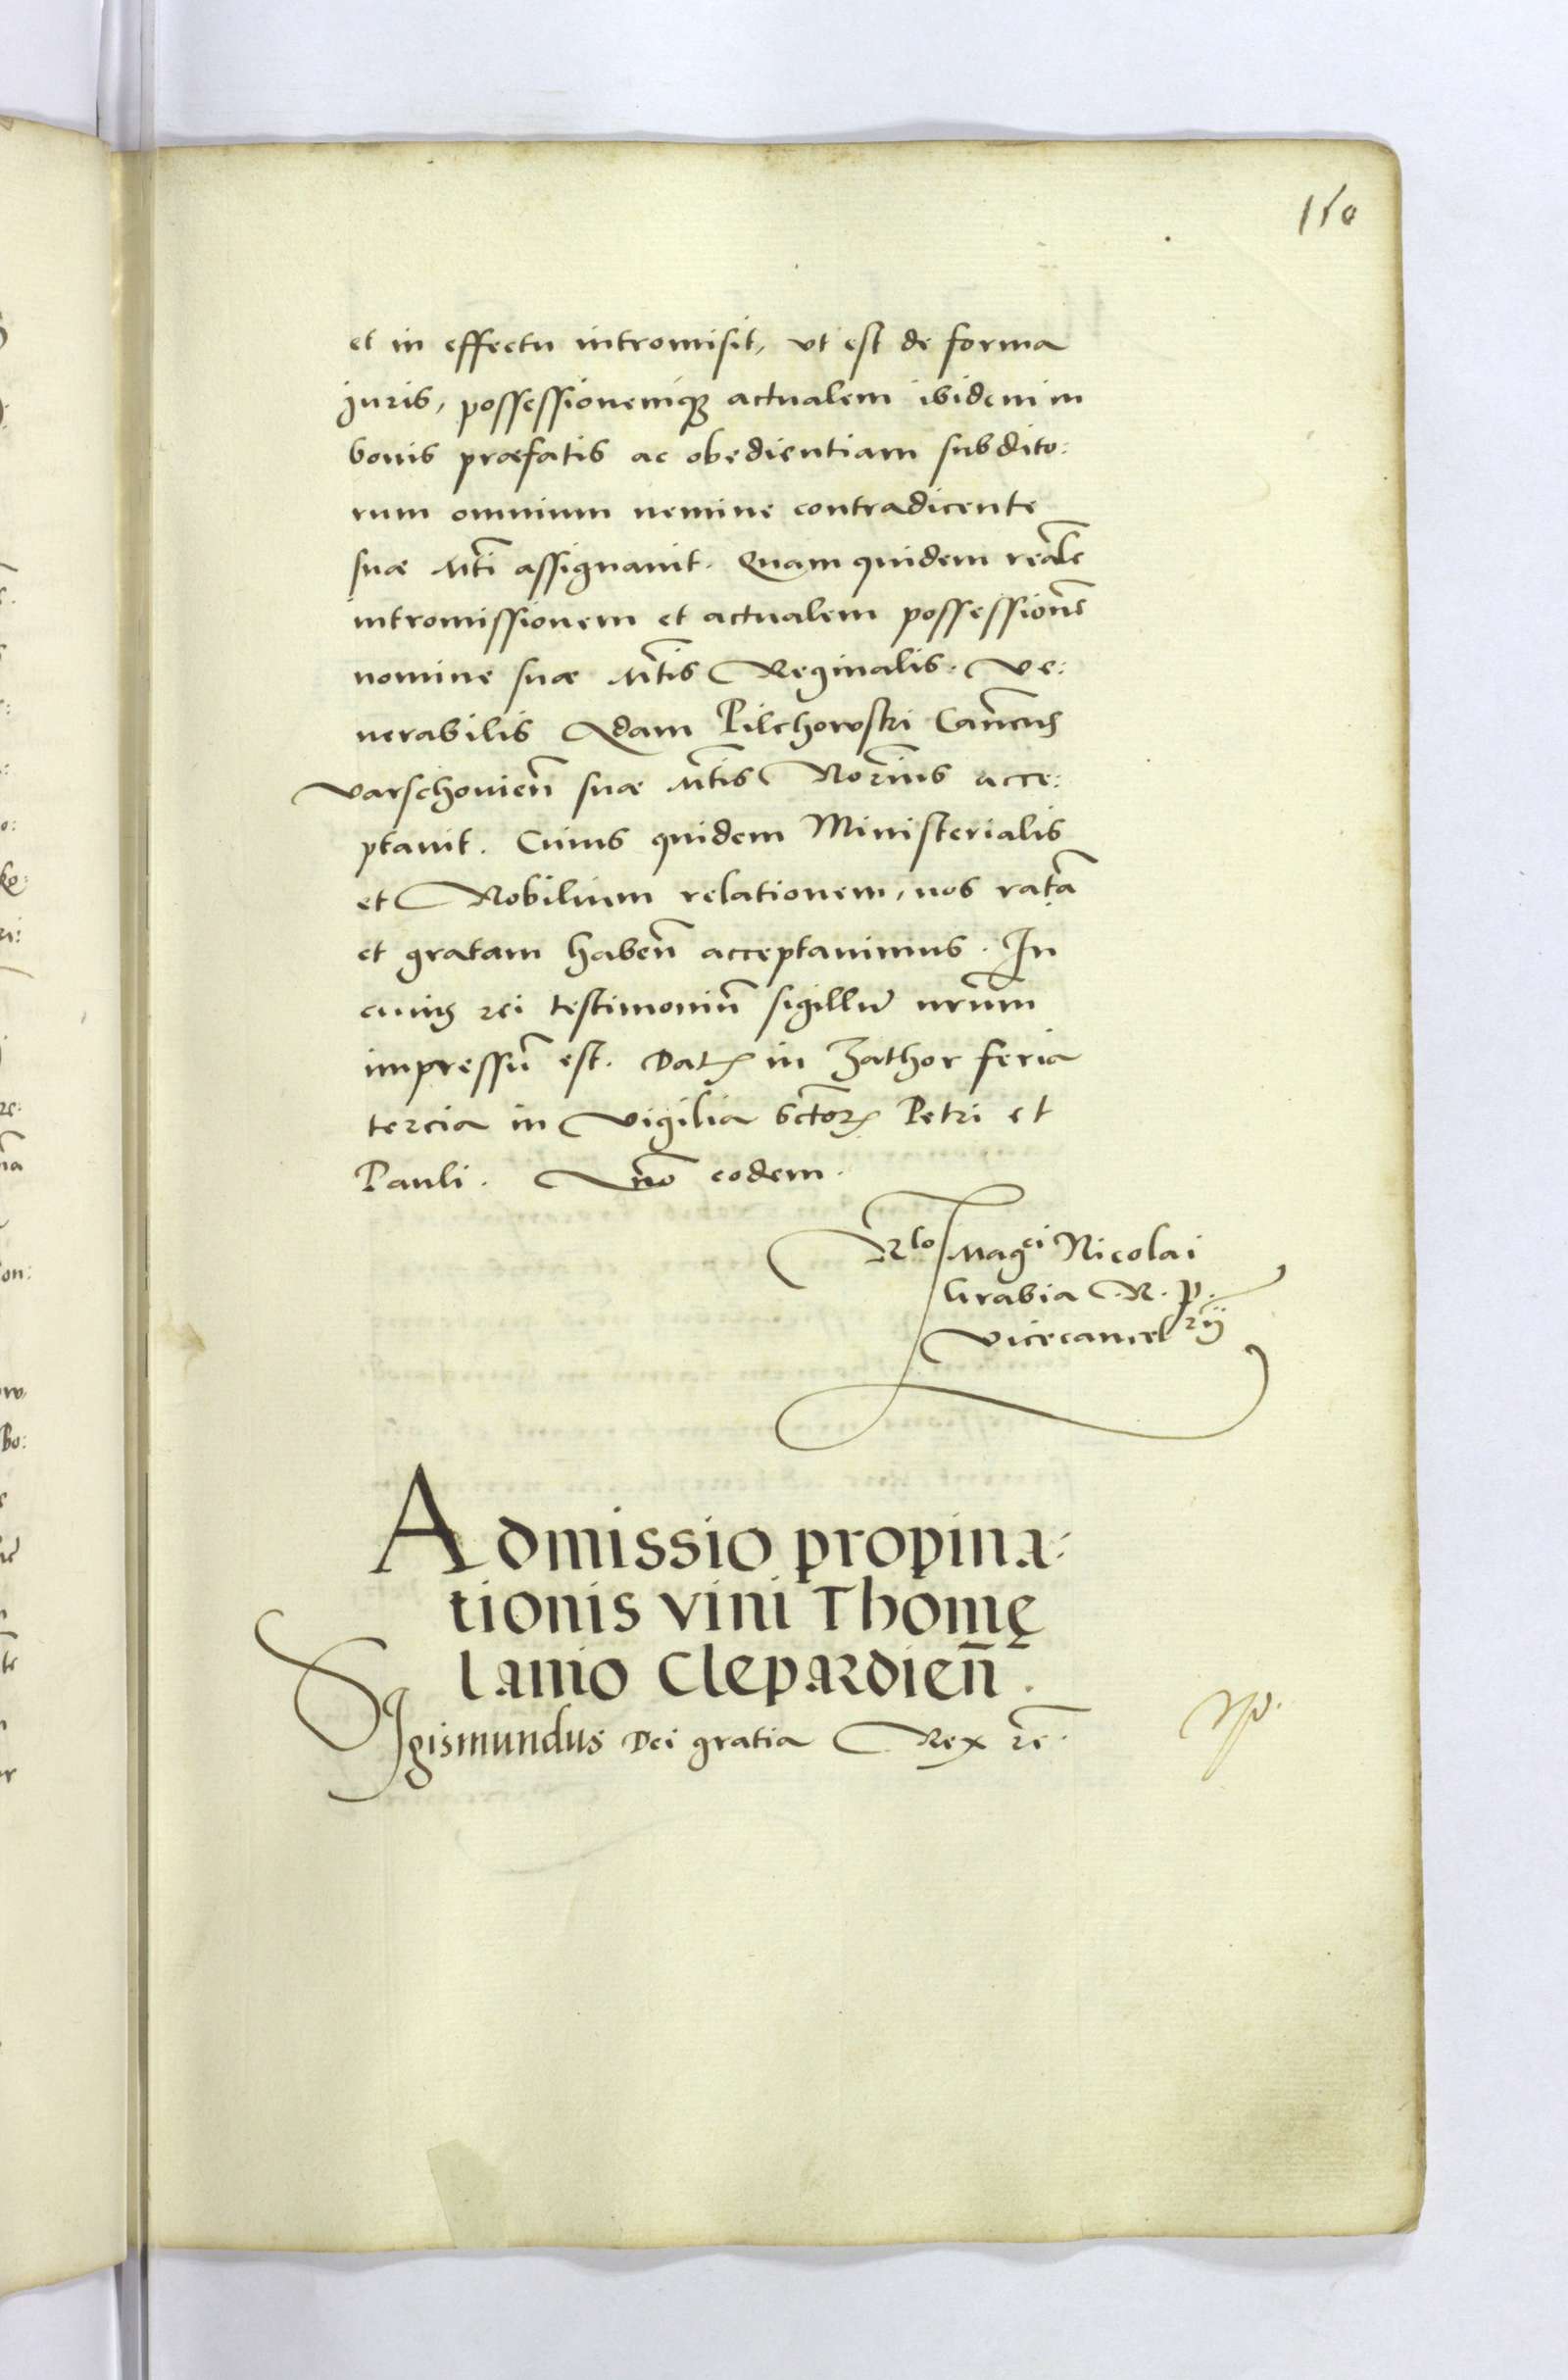 150
et in effectu intromisit, vt est de forma
juris, possessionemq₃ actualem ibidem in
bonis præfatis ac obedientiam subdito:
rum omnium nemine contradicente
suæ Mti̅ assignauit. Quam quidem reale̅
intromissionem et actualem possessione̅
nomine suæ Mti̅s Reginalis. Ve:
nerabilis Adam Pilchowski Cano̅cus
Varschovien̅ suæ Mti̅s No̅rius acce:
ptauit. Cuius quidem Ministerialis
et Nobilium relationem, nos rata̅
et gratam haben̅ acceptauimus. In
cuius rei testimoniu̅ sigillu̅ nr̅um
impressu̅ est. Datꝭ in Zathor feria
tercia in Vigilia Sctorꝝ Petri et
Pauli. An̅o eodem.
Rlo Magci Nicolai
Grabia R. P.
Vicecancelrij
Admissio propina:
tionis vini Thomę
lanio Clepardien̅.
Sigismundus Dei gratia Rex rc̅.